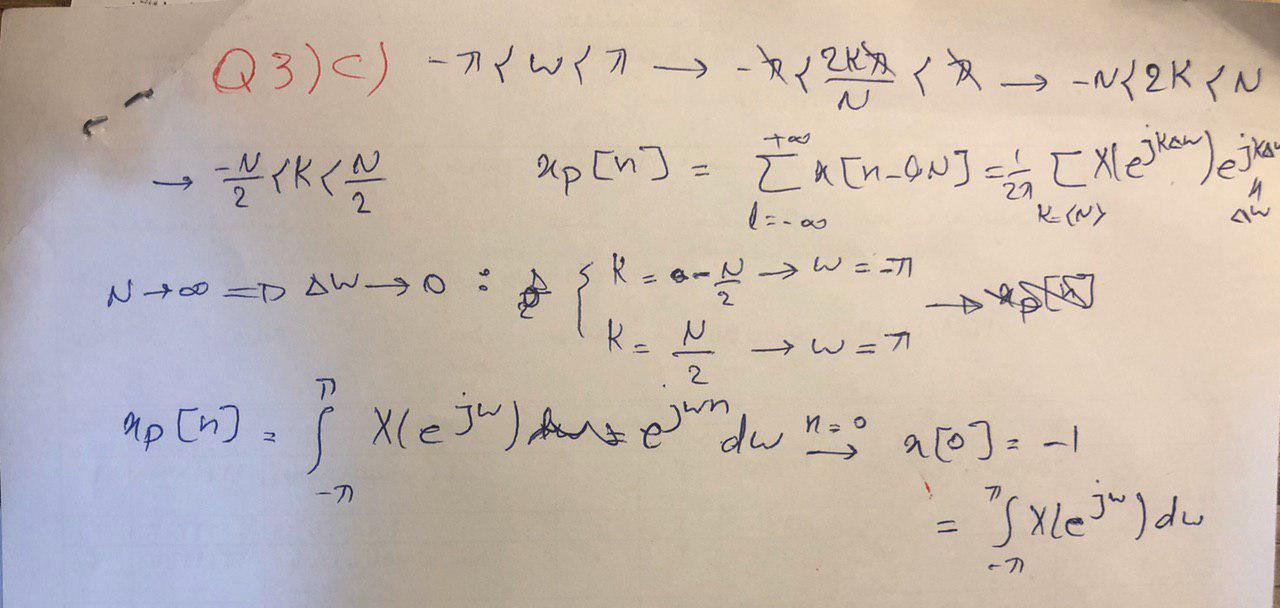 Q3)c) -π < w < π → -π < 2kπ/N < π → -N < 2K < N
→ -N/2 < K < N/2 x_p[n] = Σ_{l=-∞}^{+∞} x[n-lN] = 1/2π Σ_{K=⟨N⟩} X(e^{jkΔw}) e^{jkΔw n} Δw
N→∞ ⇒ Δw→0 : { K = -N/2 → w = -π
K = N/2 → w = π
x_p[n] = ∫_{-π}^{π} X(e^{jw}) e^{jwn} dw →^{n=0} x[0] = -1
= ∫_{-π}^{π} X(e^{jw}) dw